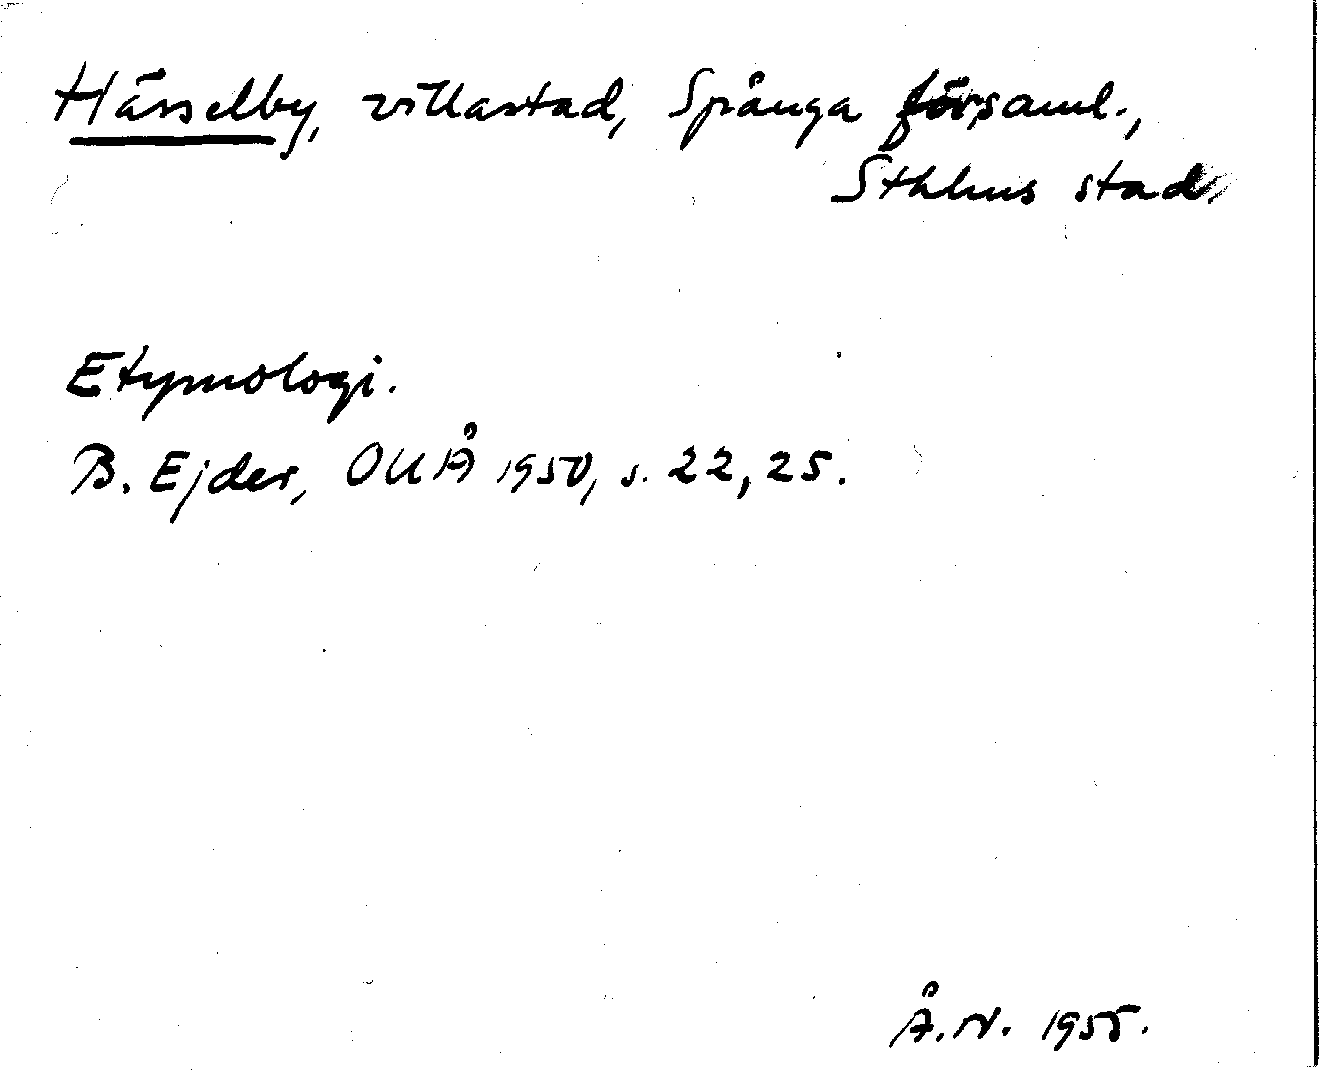 Hässelby, villastad, Spånga församl.,
Sthlms stad
Etymologi.
B. Ejder, OUÅ 1950, s. 22, 25.
Å. N. 1955.